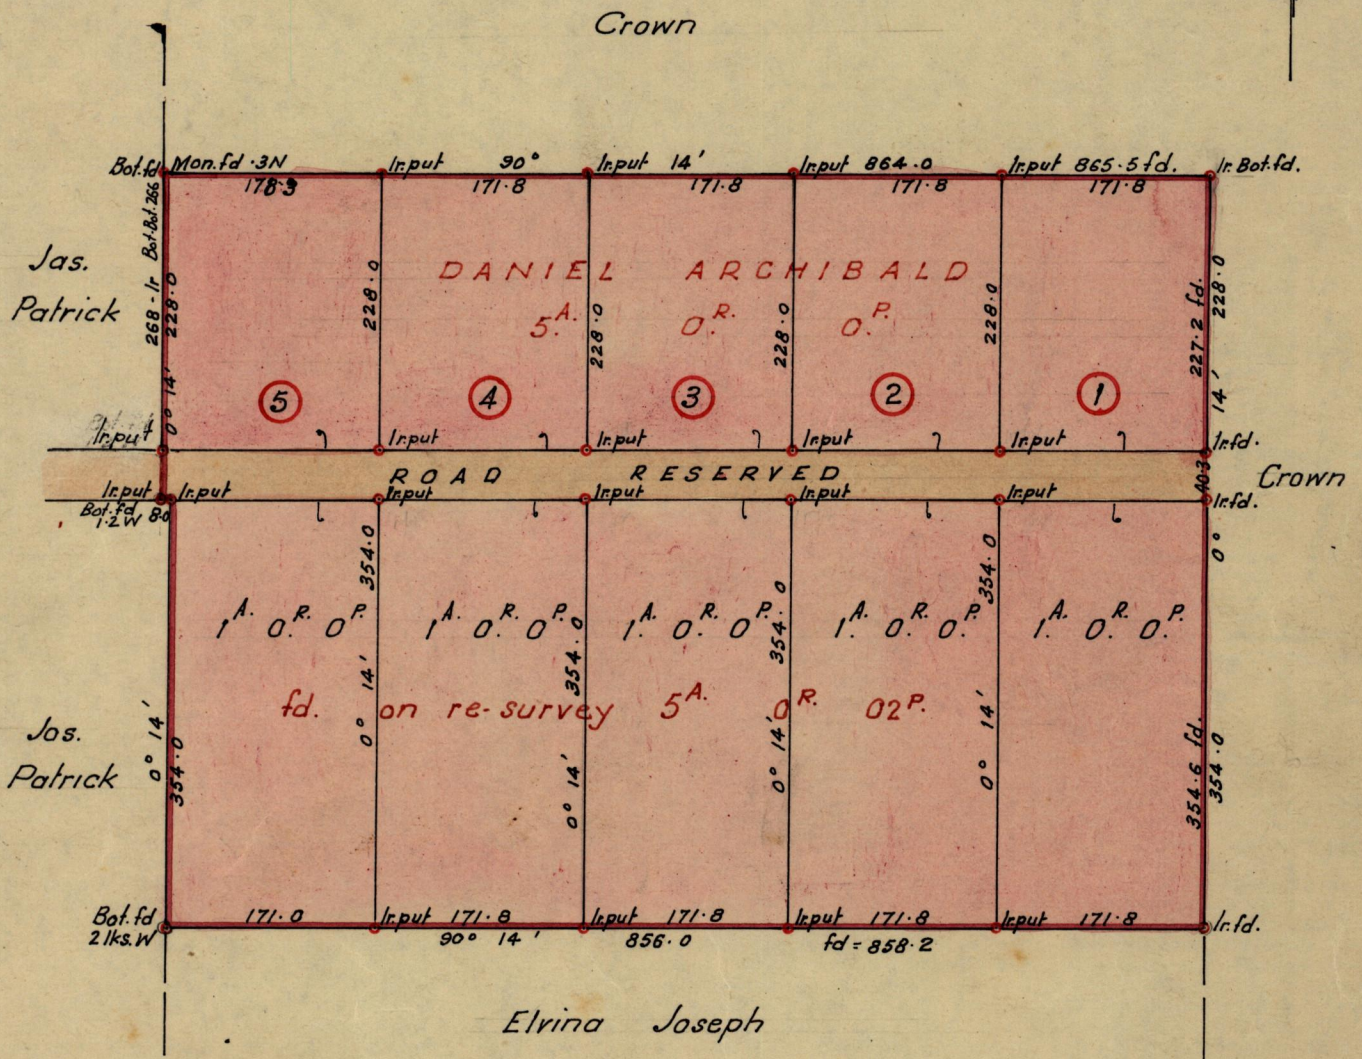 Crown
Bot.fd Mon.fd ·3N Ir.put 90° Ir.put 14' Ir.put 864·0 Ir.put 865·5 fd. Ir. Bot.fd.
178·3 171·8 171·8 171·8 171·8
Jas.
Patrick
268 - Ir Bot.Bot.266
0° 14' 228·0
228·0
228·0
228·0
228·0
227·2 fd.
14' 228·0
DANIEL ARCHIBALD
5A. 0R. 0P.
5 4 3 2 1
Ir.put Ir.put Ir.put Ir.put Ir.put Ir.fd.
ROAD RESERVED
40·3
Crown
Ir.put Ir.put Ir.put Ir.put Ir.put Ir.put Ir.fd.
Bot.fd
1·2 W 8·0
354·0
354·0
354·0
354·0
0°
1A. 0R. 0P. 1A. 0R. 0P. 1A. 0R. 0P. 1A. 0R. 0P. 1A. 0R. 0P.
fd. on re-survey 5A. 0R. 02P.
Jas.
Patrick
0° 14'
354·0
0° 14'
0° 14'
0° 14'
0° 14'
354·6 fd.
354·0
Bot.fd 171·0 Ir.put 171·8 Ir.put 171·8 Ir.put 171·8 Ir.put 171·8 Ir.fd.
2 lks.W 90° 14' 856·0 fd = 858·2
Elvina Joseph